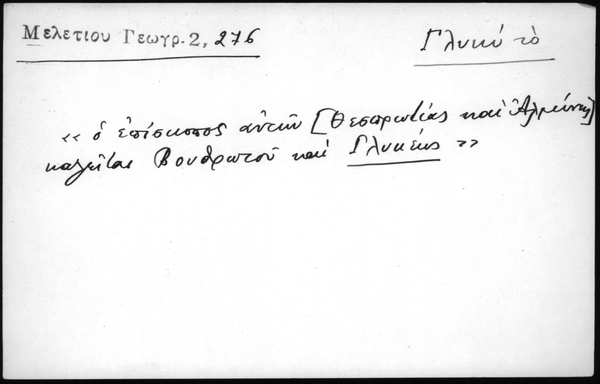 Μελετιου Γεωγρ. 2, 276
Γλυκύ τὸ
« ὁ ἐπίσκοπος αὐτῶν [Θεσπρωτίας καὶ Ἀλμήνης]
καλεῖται Βουθρωτοῦ καὶ Γλυκέως »